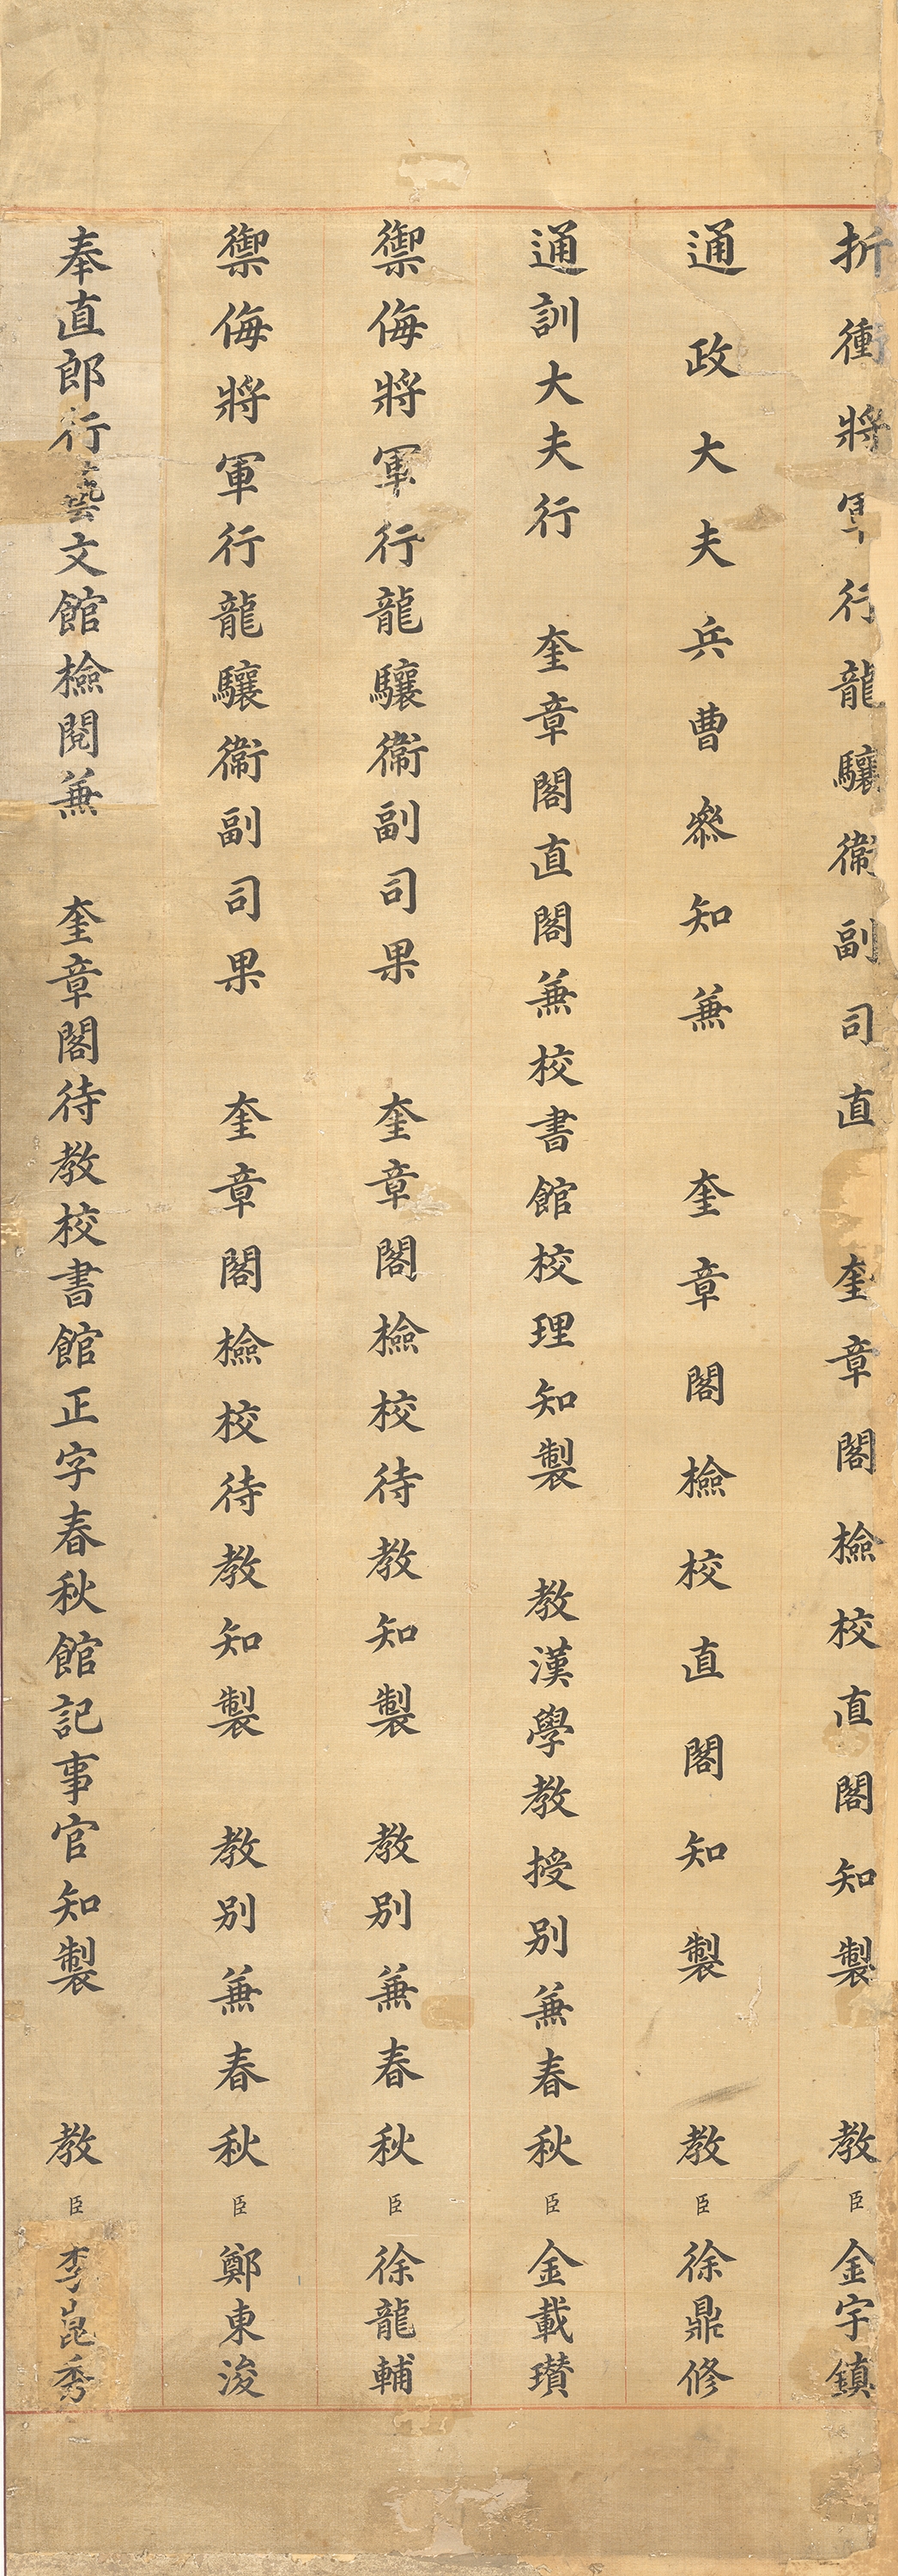 折衝將軍行龍驤衛副司直 奎章閣檢校直閣知製 教臣金宇鎮
通政大夫兵曹叅知兼 奎章閣檢校直閣知製 教臣徐鼎修
通訓大夫行 奎章閣直閣兼校書館校理知製 教漢學教授別兼春秋臣金載瓚
禦侮將軍行龍驤衛副司果 奎章閣檢校待教知製 教別兼春秋臣徐龍輔
禦侮將軍行龍驤衛副司果 奎章閣檢校待教知製 教別兼春秋臣鄭東浚
奉直郎行藝文館檢閱兼 奎章閣待教校書館正字春秋館記事官知製 教臣李崑秀